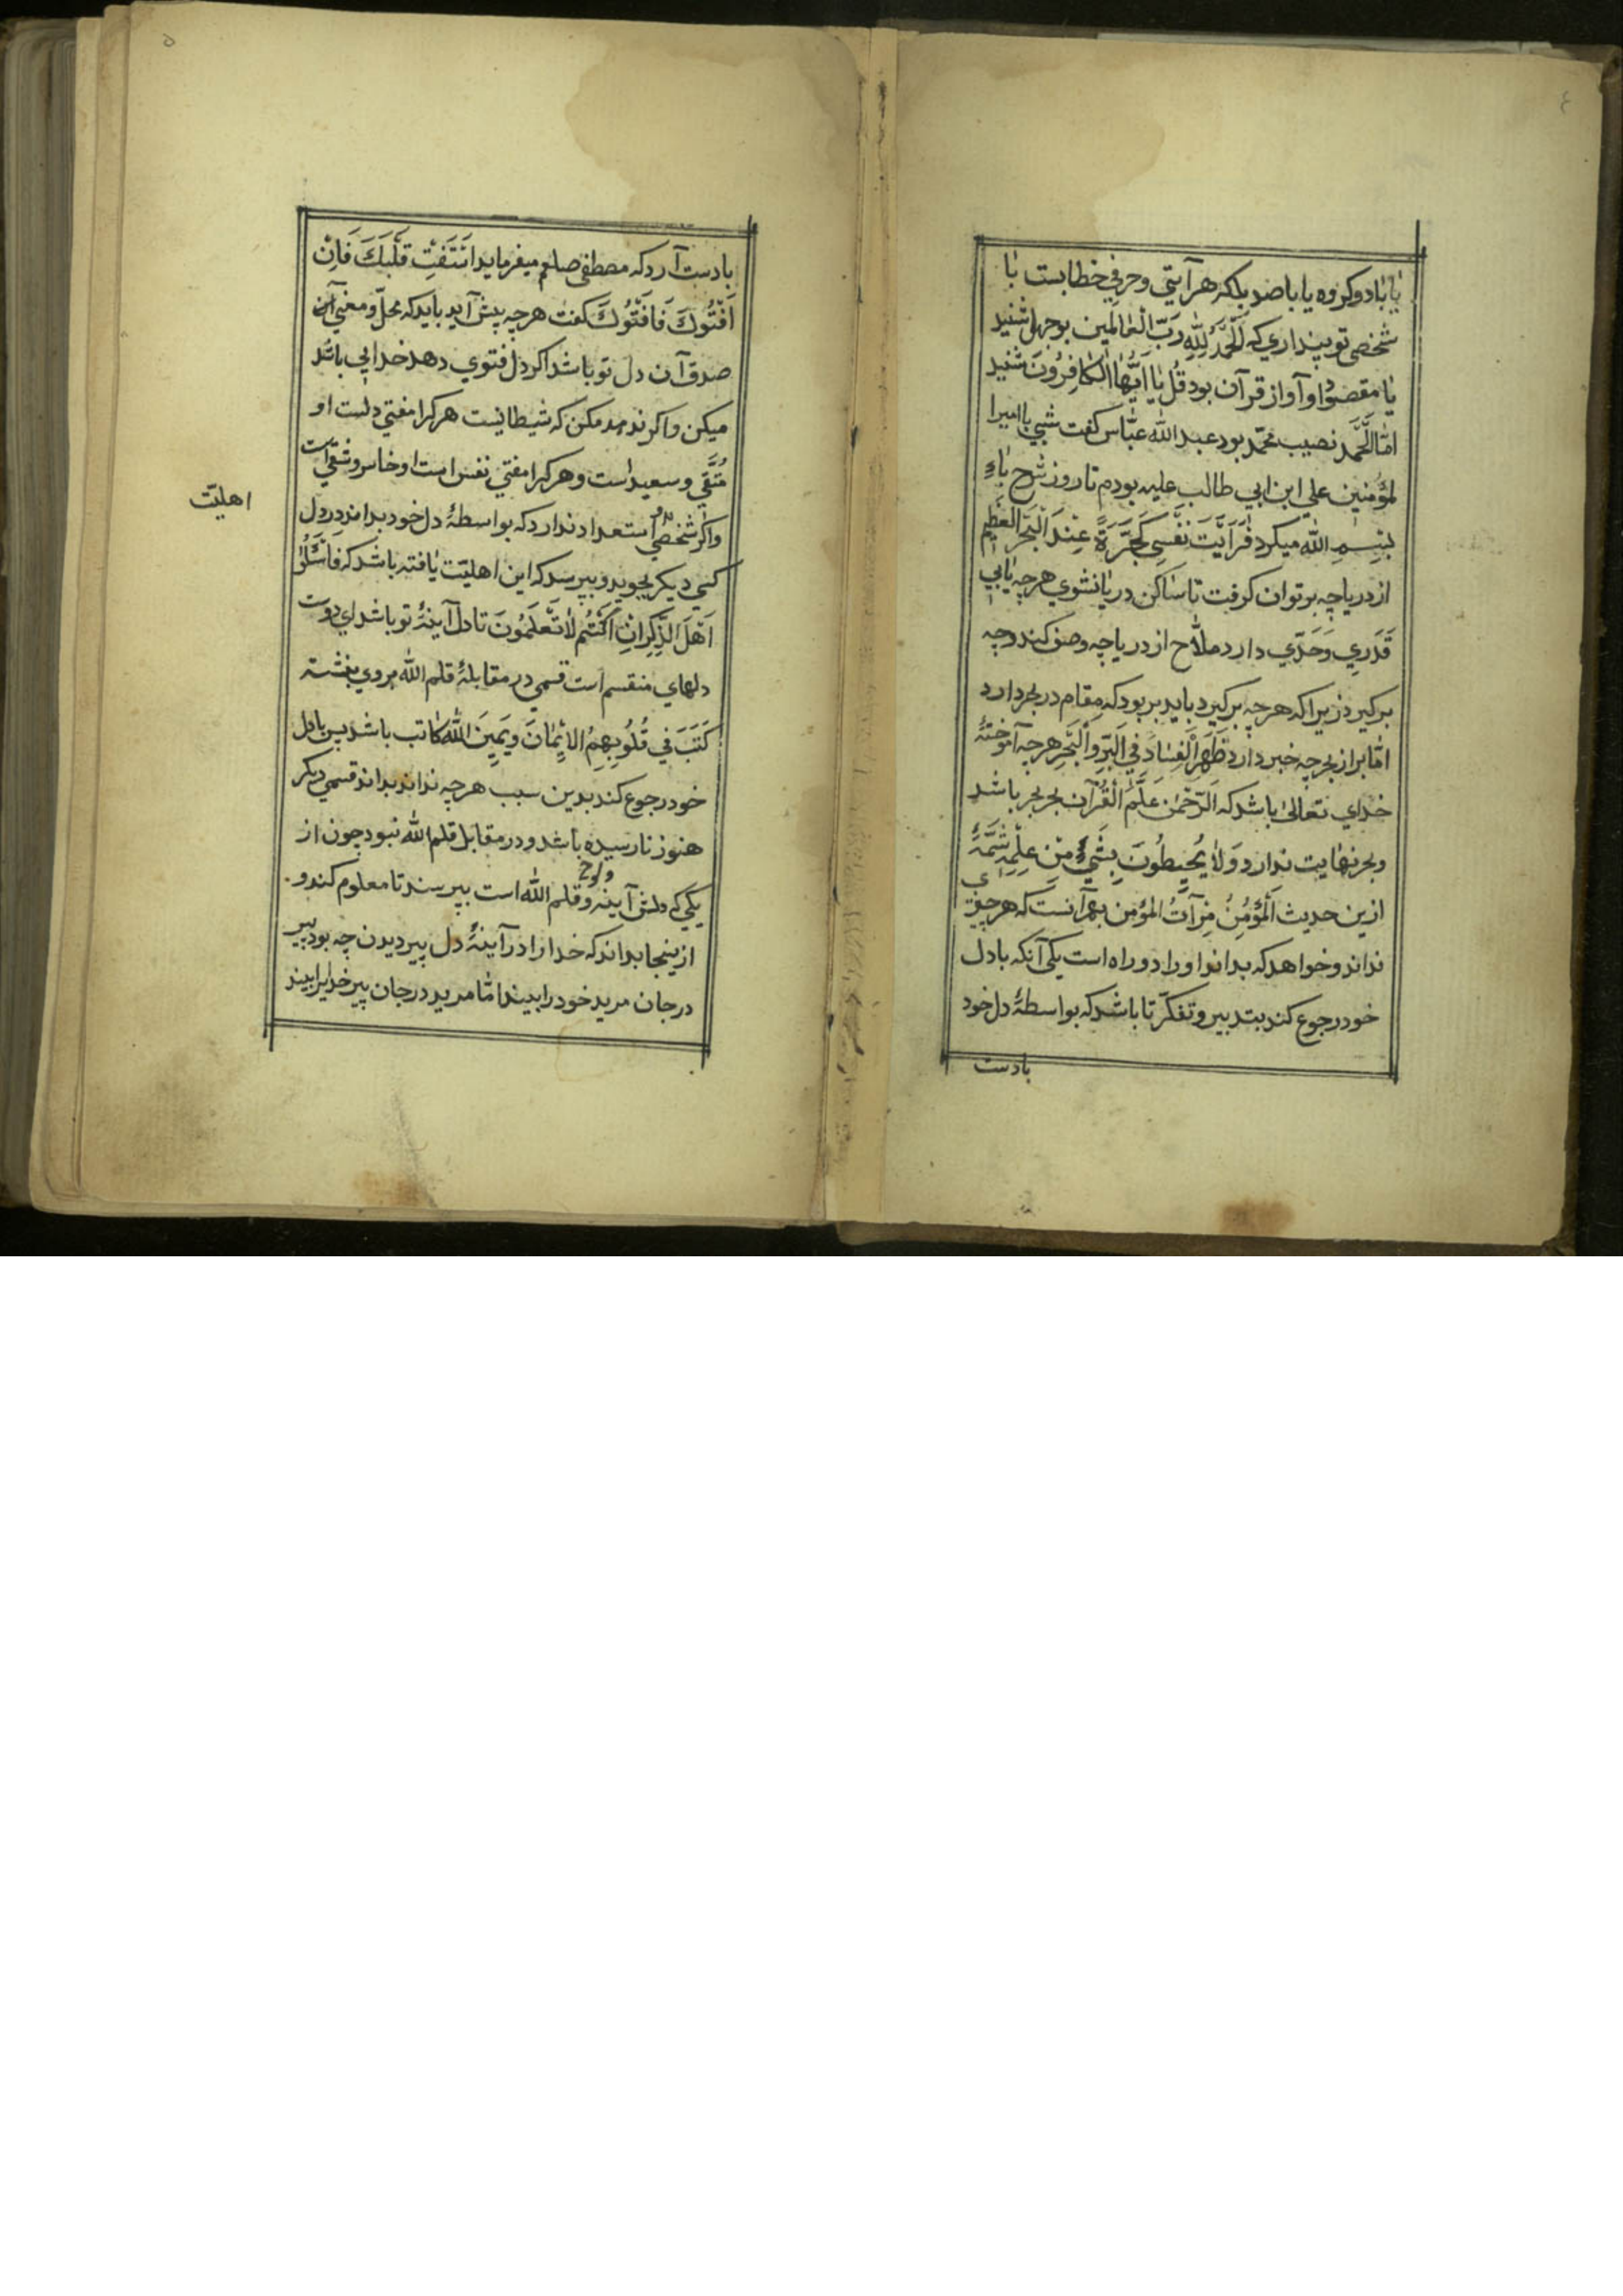 ٤
یا بادو کروه یا باصد بلکه هر آیتي و حرفي خطابست با
شخصي تو بینداري که اَلْحَمْدُ لِلّٰهِ رَبِّ الْعَالَمِین بوجهل شنید
یا مقصود او آواز قرآن بود قُلْ یَا اَیُّهَا الْکَافِرُونَ شنید
امّا اَلْحَمْد نصیب محمّد بود عبد الله عبّاس کفت شبي با امیرا
لمؤمنین علي ابن ابي طالب علیه بودم تا روز شرح باءِ
بِسْمِ اللّٰه میکرد فَرَاَیْتُ نَفْسِي کَجَرَّةٍ عِنْدَ الْبَحْرِ الْعَظِیم
از دریا چه بر توان کرفت تا ساکن دریا نشوي هرچه یابي
قَدَري وَحَدّي دارد ملّاح از دریا چه وصف کند و چه
برکیرد زیرا که هرچه برکیرد باید بر بود که مقام در بحر دارد
امّا بر از بحر چه خبر دارد ظَهَرَ الْفَسَادُ فِي الْبَرِّ وَالْبَحْرِ هرچه آموختۀ
خداي تعالی باشد که اَلرَّحْمٰنُ عَلَّمَ الْقُرْآنَ بحر بحر باشد
و بحر نهایت ندارد وَلَا یُحِیطُونَ بِشَيْءٍ مِنْ عِلْمِهِ شمّۀ
ازین حدیث اَلْمُؤْمِنُ مِرْآتُ الْمُؤْمِن بهر آنست که هر چیزي
نداند و خواهد که بداند او را دو راه است یکي آنکه بادل
خود رجوع کند بتدبیر و تفکّر تا باشد که بواسطۀ دل خود
بادست
۵
بادست آرد که مصطفی صلعم میفرماید اسْتَفْتِ قَلْبَكَ فَاِنْ
اَفْتُوكَ فَافْتُوكَ کفت هرچه پیش آید باید که محلّ و مفتي آن
صدق آن دل تو باشد اکر دل فتوي دهد خدایي باشد
میکن و اکر ندهد مکن که شیطانیست هر کرا مفتي دلست او
مُتَّقي و سعید است و هر کرا مفتي نفس است او خاسر و شقي است
و اکر شخصي استعداد ندارد که بواسطۀ دل خود بداند در دل
کسي دیکر بجوید و بپرسد که این اهلیّت یافته باشد که فَاسْئَلُوا
اَهْلَ الذِّکْرِ اِنْ کُنْتُمْ لَا تَعْلَمُونَ تا دل آینۀ تو باشد اي دوست
اهلیّت
دلهاي منقسم است قسمي در مقابلۀ قلم الله بروي بنشته
کَتَبَ فِي قُلُوبِهِمُ الْاِیْمَانَ و یَمِینَ اللّٰه کاتب باشد پس بادل
خود رجوع کند بدین سبب هرچه نداند بداند قسمي دیکر
هنوز نارسیده باشد و در مقابل قلم الله نبود چون از
یکي که دلش آینه و لوح و قلم الله است بپرسند تا معلوم کند و
ازینجا بداند که خدا را در آینۀ دل پیر دیدن چه بود پیر
در جان مرید خود را بیند امّا مرید در جان پیر خدایرا بیند